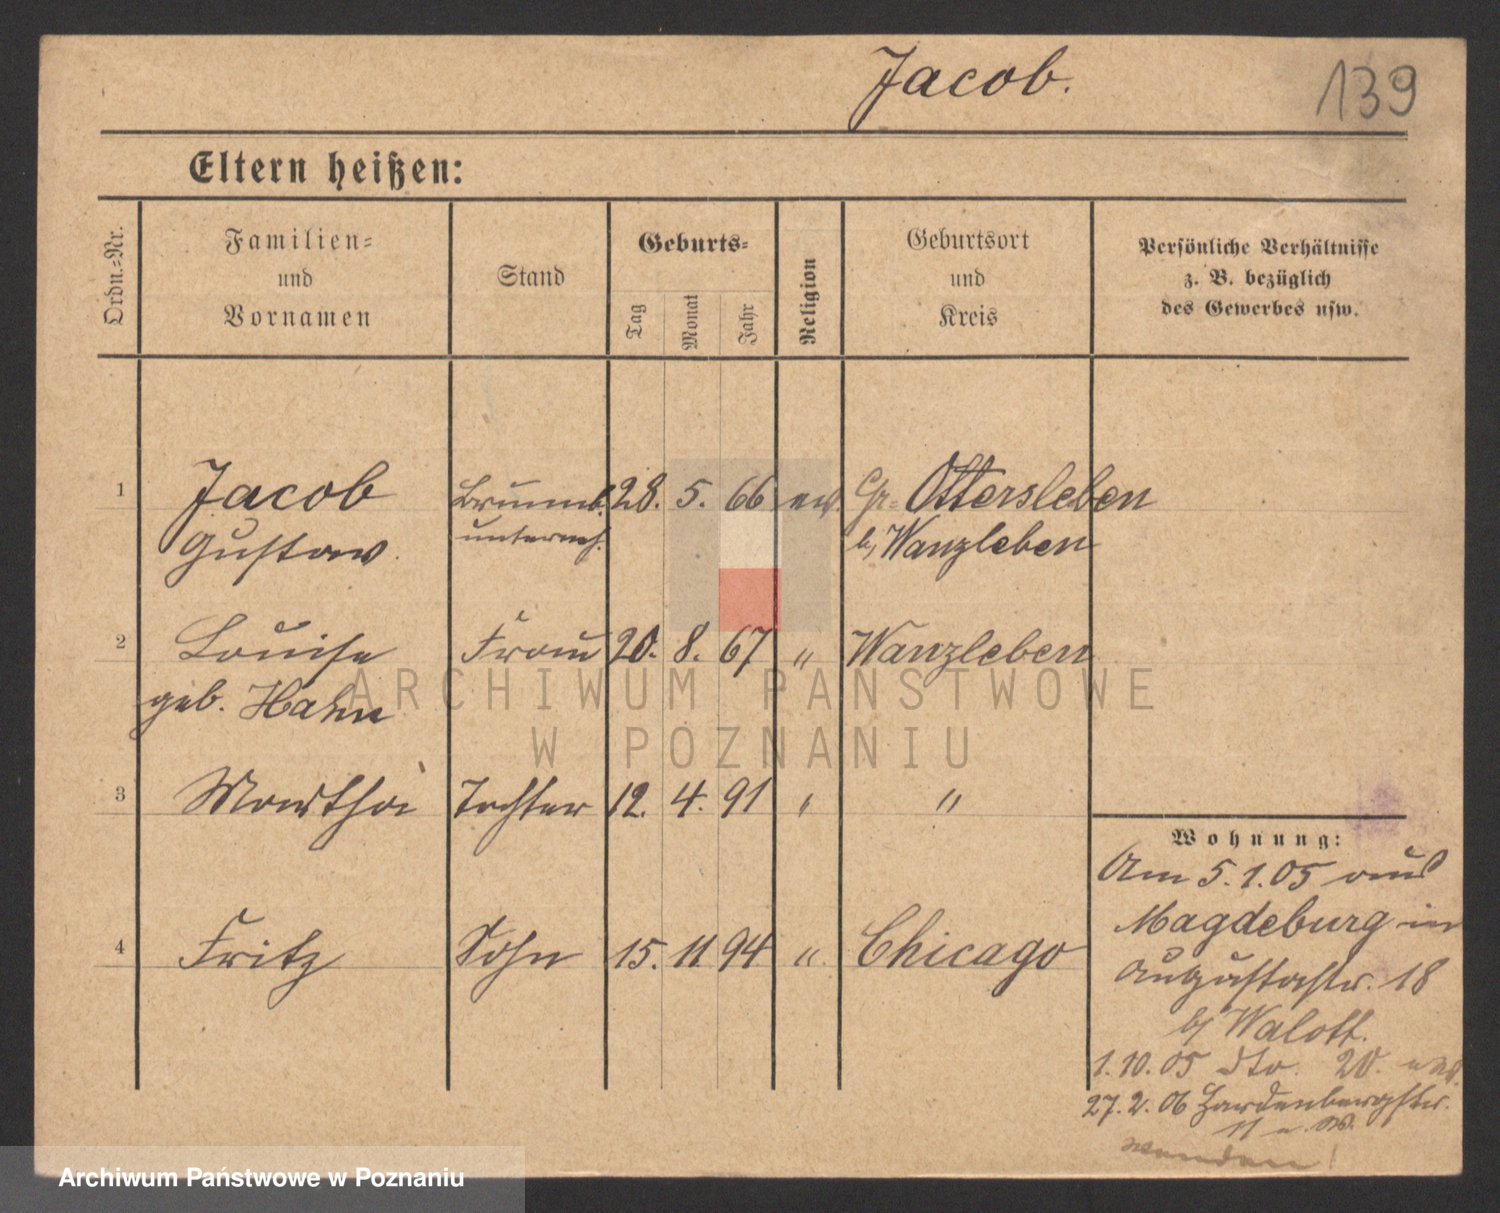 Jacob.
139
Eltern heißen:
Ordn.-Nr.
Familien-
und
Vornamen
Stand
Geburts-
Tag
Monat
Jahr
Religion
Geburtsort
und
Kreis
Persönliche Verhältnisse
z. B. bezüglich
des Gewerbes usw.
1 Jacob 28. 5. 66 ev. Gr. Ottersleben
Gustav unterneh. b/ Wanzleben
2 Louise Frau 20. 8. 67 " Wanzleben
geb. Hahn
ARCHIWUM PAŃSTWOWE
W POZNANIU
3 Martha Tochter 12. 4. 91 " "
4 Fritz Sohn 15. 11 94 " Chicago
Wohnung:
Am 5.1.05 aus
Magdeburg in
Augustastr. 18
b/ Walott.
1.10.05 dto. 20.
27.2.06 Hardenbergstr.
11
wenden!
Archiwum Państwowe w Poznaniu